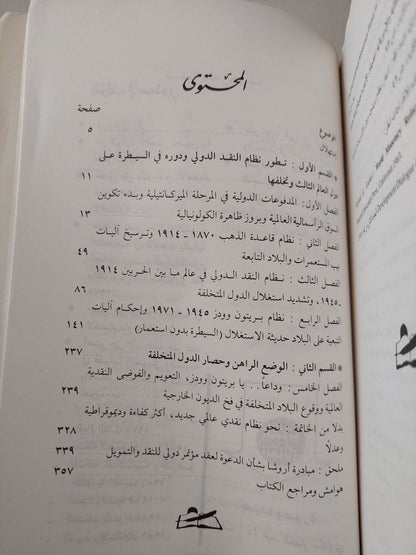 المحتوى
الموضوع
صفحة
استهلال
٥
* القسم الأول : تطور نظام النقد الدولي ودوره في السيطرة على
دول العالم الثالث وتخلفها
١١
الفصل الأول : المدفوعات الدولية في المرحلة الميركانتيلية وبدء تكوين
السوق الرأسمالية العالمية وبروز ظاهرة الكولونيالية
١٣
الفصل الثاني : نظام قاعدة الذهب ١٨٧٠ - ١٩١٤ وترسيخ آليات
نهب المستعمرات والبلاد التابعة
٤٩
الفصل الثالث : نظام النقد الدولي في عالم ما بين الحربين ١٩١٤
- ١٩٤٥، وتشديد استغلال الدول المتخلفة
٨٦
الفصل الرابع : نظام بريتون وودز ١٩٤٥ - ١٩٧١ وإحكام آليات
التبعية على البلاد حديثة الاستغلال (السيطرة بدون استعمار)
١٤١
* القسم الثاني : الوضع الراهن وحصار الدول المتخلفة
٢٣٧
الفصل الخامس: وداعاً.. يا بريتون وودز، التعويم والفوضى النقدية
العالمية ووقوع البلاد المتخلفة في فخ الديون الخارجية
٢٣٩
بدلا من الخاتمة : نحو نظام نقدي عالمي جديد، أكثر كفاءة وديموقراطية
وعدلا
٣٢٨
ملحق : مبادرة أروشا بشأن الدعوة لعقد مؤتمر دولي للنقد والتمويل
٣٣٩
هوامش ومراجع الكتاب
٣٥٧